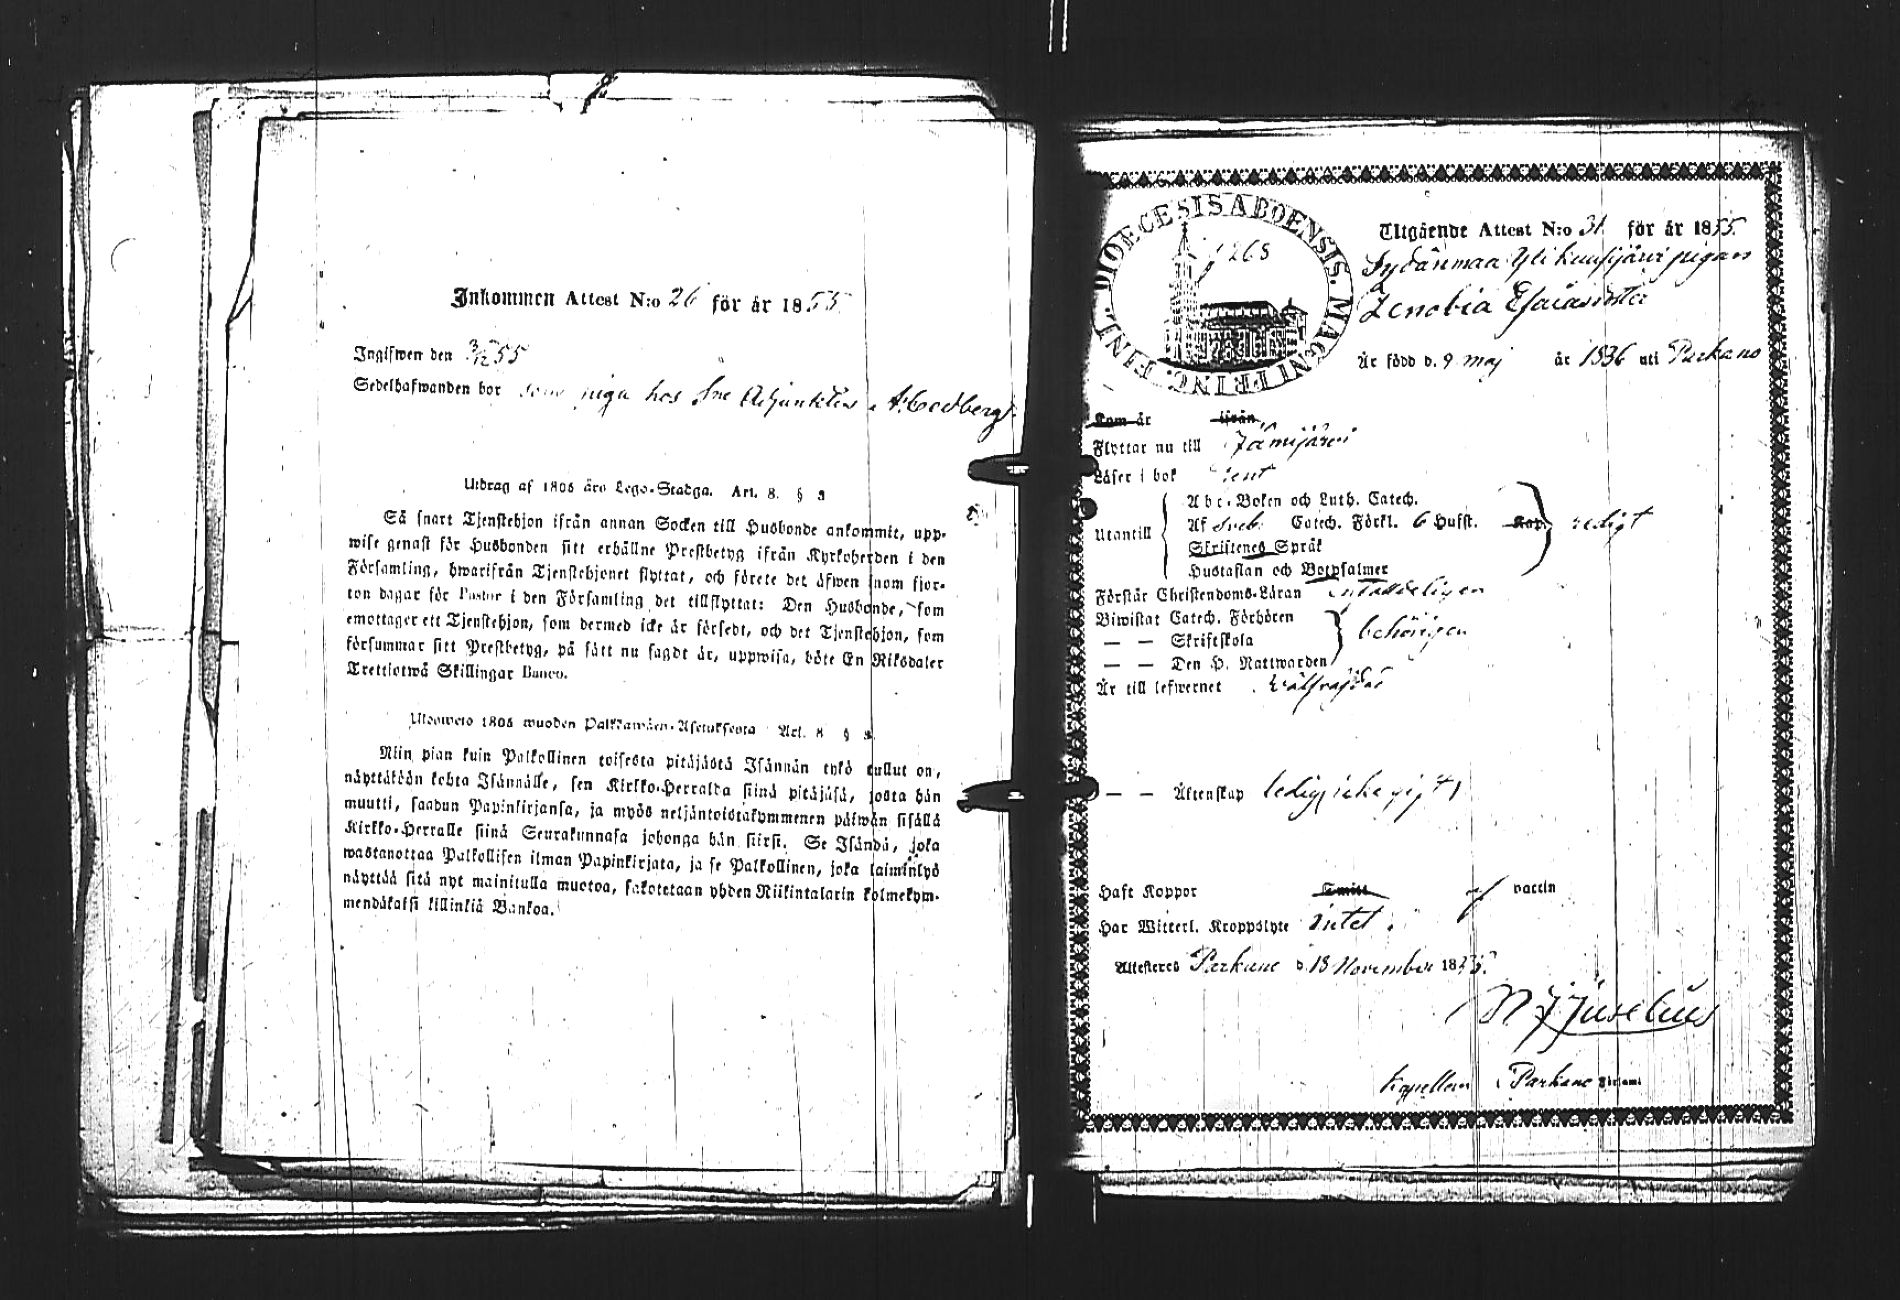 Inkommen Attest N:o 26 för år 1855.
Ingifwen den 3/12 55
Sedelhafwanden bor som piga hos Hrr Adjunkten A: Cedberg.
Utdrag af 1805 års Lego-Stadga. Art. 8. §
Så snart Tjenstehjon ifrån annan Socken till Husbonde ankommit, upp-
wise genast för Husbonden sitt erhållne Prestbetyg ifrån Kyrkoherden i den
Församling, hwarifrån Tjenstehjonet flyttat, och förete det äfwen inom fjor-
ton dagar för Pastor i den Församling det tillflyttat: Den Husbonde, som
emottager ett Tjenstehjon, som dermed icke är försedt, och det Tjenstehjon, som
försummar sitt Prestbetyg, på sätt nu sagdt är, uppwisa, böte En Riksdaler
Trettiotwå Skillingar Banco.
Ulosweto 1805 wuoden Palkkawäen-Asetuksesta Art. 8 §
Niin pian kuin Palkollinen toisesta pitäjästä Isännän tykö tullut on,
näyttäköön kohta Isännälle, sen Kirkko-Herralda siinä pitäjäsä, josta hän
muutti, saadun Papinkirjansa, ja myös neljäntoistakymmenen päiwän sisällä
Kirkko-Herralle siinä Seurakunnasa johonga hän siirsi. Se Isändä, joka
wastanottaa Palkollisen ilman Papinkirjata, ja se Palkollinen, joka laiminlyö
näyttää sitä nyt mainitulla muotoa, sakotetaan yhden Riikintalarin kolmekym-
mendäkaksi killinkiä Bankoa.
DIOECESIS ABOENSIS. MAGNI PRINC. FINL.
1268
Utgående Attest N:o 31 för år 1855.
Sydänmaa Ylikuusijärvi pigan
Zenobia Esaiasdotter
Är född d. 9 maj år 1836 uti Parkano
Kom år ifrån
Flyttar nu till Jämijärvi
Läser i bok rent
Utantill
Abc-Boken och Luth. Catech.
Af Sveb. Catech. Förkl. 6 Hufst. redigt
Skriftenes Språk
Hustaflan och Botpsalmer
Förstår Christendoms-Läran
Biwistat Catech. Förhören
— — Skriftskola behörigen
— — Den H. Nattwarden
Är till lefwernet wälfrejdad
— — Äktenskap ledig, icke gift
Haft Koppor Smitt af vaccin
Har Witterl. Kroppslyte intet.
Attesteras Parkano d. 18 November 1855.
N J Juselius
Kapellan i Parkano